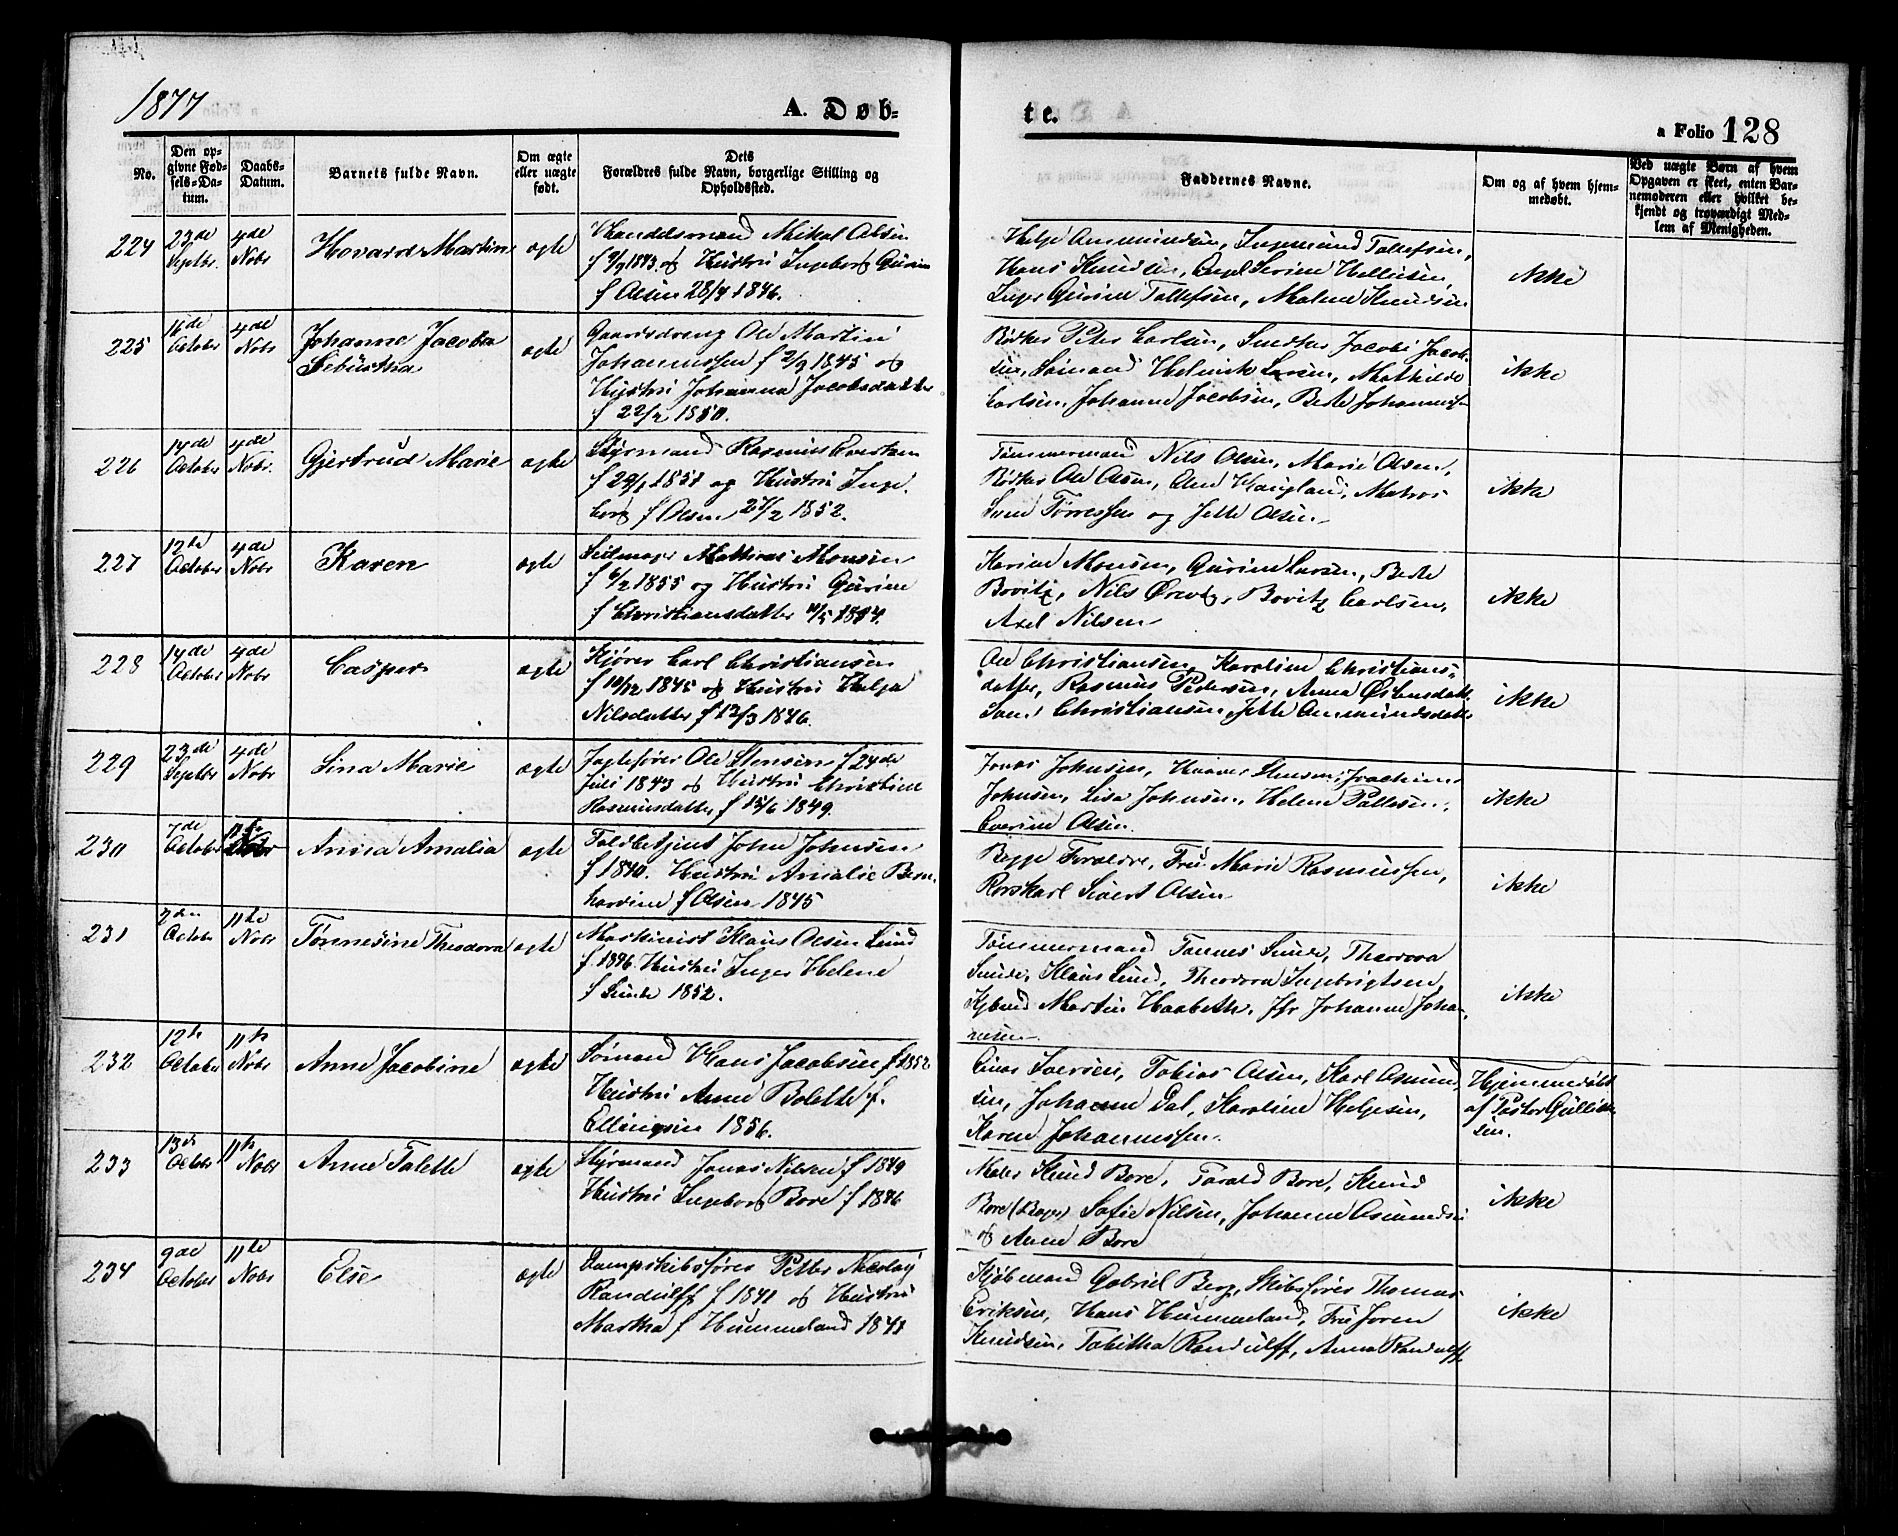 1877
A. Døb-
te.
a Folio 128
No.
Den op-
givne Fød-
sels-Da-
tum.
Daabs-
Datum.
Barnets fulde Navn.
Om ægte
eller uægte
født.
Dets
Forældres fulde Navn, borgerlige Stilling og
Opholdssted.
Faddernes Navne.
Om og af hvem hjem-
medøbt.
Ved uægte Børn af hvem
Opgaven er skeet, enten Bar-
nemoderen eller hvilket be-
kjendt og troværdigt Med-
lem af Menigheden.
224
23de
Septbr.
4de
Nobr
Hovard Martin
ægte
Handelsmand Mikal Olsen
f 9/9 1843 og Hustru Ingeborg Gurine
f Olsen 28/4 1846.
Helje Ommundsen, Ingemund Tollefsen,
Hans Knudsen, Engel Serine Helliesen,
Inger Gurine Tollefsen, Malene Knudsen
ikke
225
16de
October
4de
Nobr
Johanne Jacoba
Sebustha
ægte
Gaardsdreng Ole Martin
Johannessen f 2/9 1845 og
Hustru Johanna Jacobsdatter
f 22/2 1850.
Bødker Peter Carlsen, Snedker Jacob Jacob-
sen, Sømand Helmik Larsen, Mathilde
Carlsen, Johanne Jacobsen, Berte Johanness
ikke
226
14de
October
4de
Nobr.
Gjertrud Marie
ægte
Styrmand Rasmus Evertsen
f 29/1 1851 og Hustru Inge-
borg f Olsen 27/2 1852.
Tømmermand Nils Olsen, Marie Olsen,
Bødker Ole Olsen, Elen Haugland, Matros
Svend Tørressen og Jette Olsen
ikke
227
12te
October
4de
Nobr
Karen
ægte
Seilmager Mathias Monsen
f 6/2 1855 og Hustru Gurine
f Christiansdatter 10/5 1854.
Karine Monsen, Gurine Larsen, Berte
Bovitz, Nils Ørevig, Bovitz Carlsen,
Axel Nilsen
ikke
228
14de
October
4de
Nobr
Casper
ægte
Kjører Carl Christiansen
f 10/12 1845 og Hustru Helga
Nilsdatter f 12/3 1846.
Ole Christiansen, Karoline Christians-
datter, Rasmus Pedersen, Anna Østensdatt.
Sven Christiansen, Jette Ommundsdatter
ikke
229
23de
Septbr
4de
Nobr
Sina Marie
ægte
Jagtefører Ole Stensen f 24de
Juli 1843 og Hustru Christine
Rasmusdatter f 15/6 1849.
Jonas Johnsen, Haaver Stensen, Joachim
Johnsen, Lisa Johnsen, Helene Pallesen,
Everine Olsen.
ikke
230
7de
October
11te
Nobr
Anna Amalia
ægte
Toldbetjent John Johnsen
f 1840. Hustru Amalie Bern-
hardine f Olsen 1845
Begge Forældre, Fru Marie Rasmussen,
Rorskarl Sivert Olsen
ikke
231
2den
October
11te
Nobr
Tønnesine Theodora
ægte
Maskinist Klaus Olsen Lund
f. 1846. Hustru Inger Helene
f Sunde 1852.
Tømmermand Tønnes Sunde, Theodora
Sunde, Klaus Lund, Theodora Ingebrigtsen,
Kjbmd Martin Haabeth, Jfr Johanne Johan-
nesen.
ikke
232
12te
October
11te
Nobr
Anne Jacobine
ægte
Sømand Hans Jacobsen f 1852
Hustru Anne Bolette f.
Ellingsen 1856.
Einar Iversen, Tobias Olsen, Karl Osmund-
sen, Johanne Dal, Karoline Helgesen,
Karen Johannessen.
Hjemmedøbt
af Pastor Gullich-
sen.
233
13de
October
11te
Nobr
Anne Talette
ægte
Styrmand Jonas Nilsen f 1849
Hustru Ingeborg Bore f 1846
Maler Knud Bore, Torald Bore, Knud
Bore (Bager) Sofie Nilsen, Johanne Osmundsen
og Anne Bore
ikke
234
9de
October
11te
Nobr
Else
ægte
Dampskibsfører Petter Nicolay
Randulff f 1841 og Hustru
Martha f Hummeland 1841
Kjøbmand Gabriel Berg, Skibsfører Thomas
Eriksen, Hans Hummeland, Fru Joren
Knudsen, Tabitha Randulff, Anna Randulff
ikke